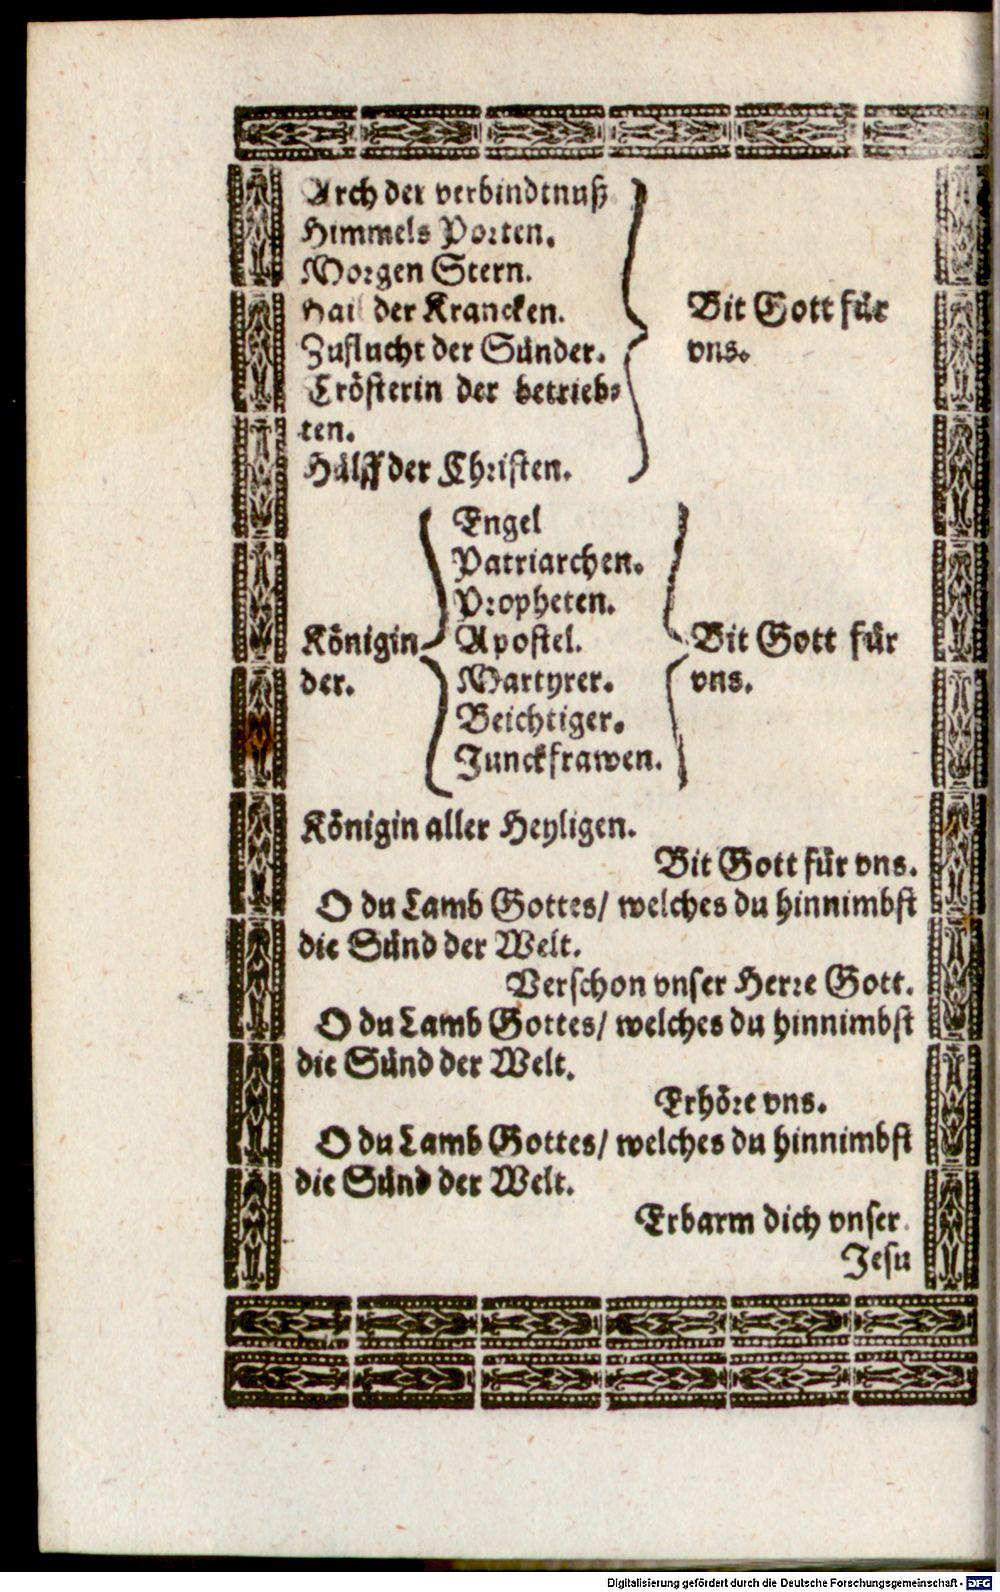 Arch der verbindtnuß
Himmels Porten.
Morgen Stern.
Hail der Krancken.
Zuflucht der Sünder.
Trösterin der betrieb-
ten.
Hülff der Christen.
Bit Gott für
vns.
Königin
der.
Engel
Patriarchen.
Propheten.
Apostel.
Martyrer.
Beichtiger.
Junckfrawen.
Bit Gott für
vns.
Königin aller Heyligen.
Bit Gott für vns.
O du Lamb Gottes/ welches du hinnimbst
die Sünd der Welt.
Verschon vnser Herre Gott.
O du Lamb Gottes/ welches du hinnimbst
die Sünd der Welt.
Erhöre vns.
O du Lamb Gottes/ welches du hinnimbst
die Sünd der Welt.
Erbarm dich vnser.
Jesu
Digitalisierung gefördert durch die Deutsche Forschungsgemeinschaft - DFG